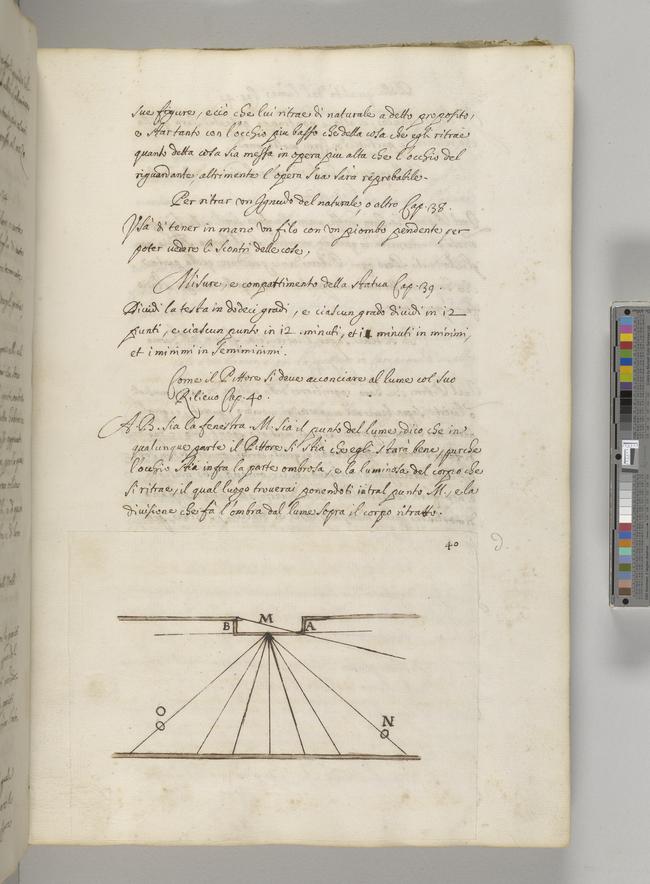 sue figure, e ciò che lui ritrae di naturale a detto proposito,
o star tanto con l'occhio piu basso che della cosa che egli ritrae
quanto detta cosa sia messa in opera piu alta che l'occhio del
riguardante, altrimente l'opera sua sarà reprobabile.
Per ritrar un Ignudo del naturale, o altro Cap. 38.
Usa di tener in mano un filo con un piombo pendente, per
poter vedere li scontri delle cose.
Misure, e compartimento della statua Cap. 39.
Dividi la testa in dodeci gradi, e ciascun grado dividi in 12
punti, e ciascun punto in 12. minuti, et i minuti in minimi,
et i minimi in semiminimi.
Come il Pittore si deve acconciare al lume col suo
Rilievo Cap. 40.
A. B. sia la fenestra. M. sia il punto del lume, dico che in
qualunque parte il Pittore si stia, che egli starà bene, purche
l'occhio stia infra la parte ombrosa, e la luminosa del corpo che
si ritrae, il qual luogo troverai ponendoti intral punto M, e la
divisione che fà l'ombra dal lume sopra il corpo ritratto.
40
B M A
O
N